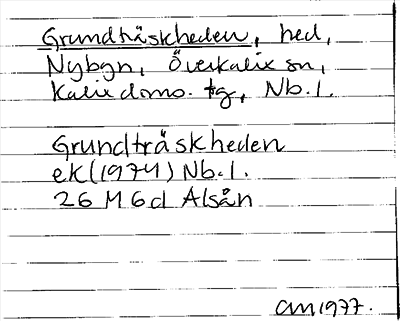 Grundträskheden, hed,
Nybgn, Överkalix sn,
Kalix doms. tg, Nb. l.
Grundträskheden
ek (1974) Nb. l.
26 M 6d Alsån
CM 1977.